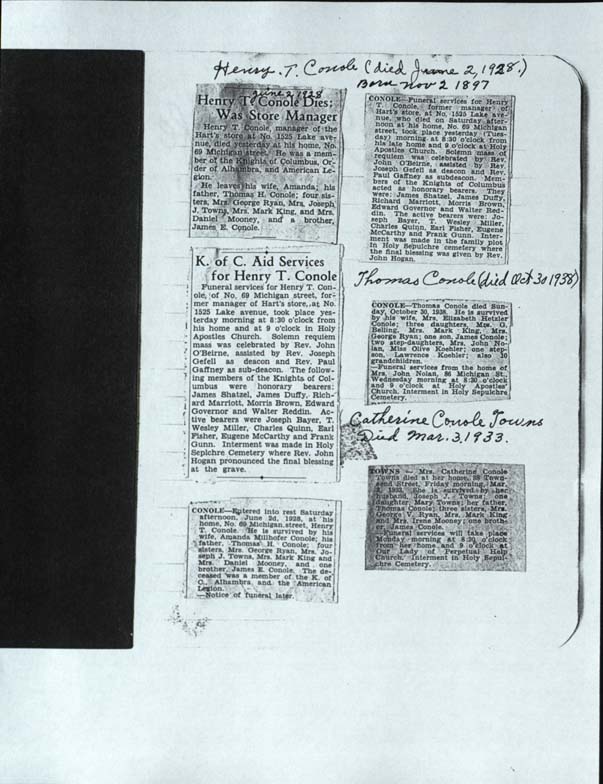 Henry. T. Conole (died June 2, 1928.)
Born Nov 2 1897
June 2, 1928
Henry T. Conole Dies;
Was Store Manager
Henry T. Conole, manager of the
Hart's store at No. 1525 Lake ave-
nue, died yesterday at his home, No.
69 Michigan street. He was a mem-
ber of the Knights of Columbus, Or-
der of Alhambra, and American Le-
gion.
He leaves his wife, Amanda; his
father, Thomas H. Conole; four sis-
ters, Mrs. George Ryan, Mrs. Joseph
J. Towns, Mrs. Mark King, and Mrs.
Daniel Mooney, and a brother,
James E. Conole.
K. of C. Aid Services
for Henry T. Conole
Funeral services for Henry T. Con-
ole, of No. 69 Michigan street, for-
mer manager of Hart's store, at No.
1525 Lake avenue, took place yes-
terday morning at 8:30 o'clock from
his home and at 9 o'clock in Holy
Apostles Church. Solemn requiem
mass was celebrated by Rev. John
O'Beirne, assisted by Rev. Joseph
Gefell as deacon and Rev. Paul
Gaffney as sub-deacon. The follow-
ing members of the Knights of Col-
umbus were honorary bearers:
James Shatzel, James Duffy, Rich-
ard Marriott, Morris Brown, Edward
Governor and Walter Reddin. Ac-
tive bearers were Joseph Bayer, T.
Wesley Miller, Charles Quinn, Earl
Fisher, Eugene McCarthy and Frank
Gunn. Interment was made in Holy
Seplchre Cemetery where Rev. John
Hogan pronounced the final blessing
at the grave.
CONOLE—Entered into rest Saturday
afternoon, June 2d, 1928, at his
home, No. 69 Michigan street, Henry
T. Conole. He is survived by his
wife, Amanda Millhofer Conole; his
father, Thomas H. Conole; four
sisters, Mrs. George Ryan, Mrs. Jo-
seph J. Towns, Mrs. Mark King and
Mrs. Daniel Mooney, and one
brother, James E. Conole. The de-
ceased was a member of the K. of
C., Alhambra and the American
Legion.
—Notice of funeral later.
CONOLE—Funeral services for Henry
T. Conole, former manager of
Hart's store, at No. 1525 Lake ave-
nue, who died on Saturday after-
noon at his home, No. 69 Michigan
street, took place yesterday (Tues-
day) morning at 8:30 o'clock from
his late home and 9 o'clock at Holy
Apostles Church. Solemn mass of
requiem was celebrated by Rev.
John O'Beirne, assisted by Rev.
Joseph Gefell as deacon and Rev.
Paul Gaffney as subdeacon. Mem-
bers of the Knights of Columbus
acted as honorary bearers. They
were: James Shatzel, James Duffy,
Richard Marriott, Morris Brown,
Edward Governor and Walter Red-
din. The active bearers were: Jo-
seph Bayer, T. Wesley Miller,
Charles Quinn, Earl Fisher, Eugene
McCarthy and Frank Gunn. Inter-
ment was made in the family plot
in Holy Sepulchre cemetery where
the final blessing was given by Rev.
John Hogan.
Thomas Conole (died Oct 30 1938)
CONOLE—Thomas Conole died Sun-
day, October 30, 1938. He is survived
by his wife, Mrs. Elizabeth Hetzler
Conole; three daughters, Mrs. G.
Belling, Mrs. Mark King, Mrs.
George Ryan; one son, James Conole;
two step-daughters, Mrs. John No-
lan, Miss Olive Koehler; one step-
son, Lawrence Koehler; also 10
grandchildren.
—Funeral services from the home of
Mrs. John Nolan, 86 Michigan St.,
Wednesday morning at 8:30 o'clock
and 9 o'clock at Holy Apostles'
Church. Interment in Holy Sepulchre
Cemetery.
Catherine Conole Towns
Died Mar. 3, 1933.
TOWNS — Mrs. Catherine Conole
Towns died at her home, 38 Town-
send Street, Friday morning, Mar.
3, 1933. She is survived by her
husband, Joseph J. Towns; one
daughter, Mary Towns; her father,
Thomas Conole; three sisters, Mrs.
George V. Ryan, Mrs. Mark King
and Mrs. Irene Mooney; one broth-
er, James Conole.
—Funeral services will take place
Monday morning at 8:30 o'clock
from her home and 9 o'clock at
Our Lady of Perpetual Help
Church. Interment in Holy Sepul-
chre Cemetery.